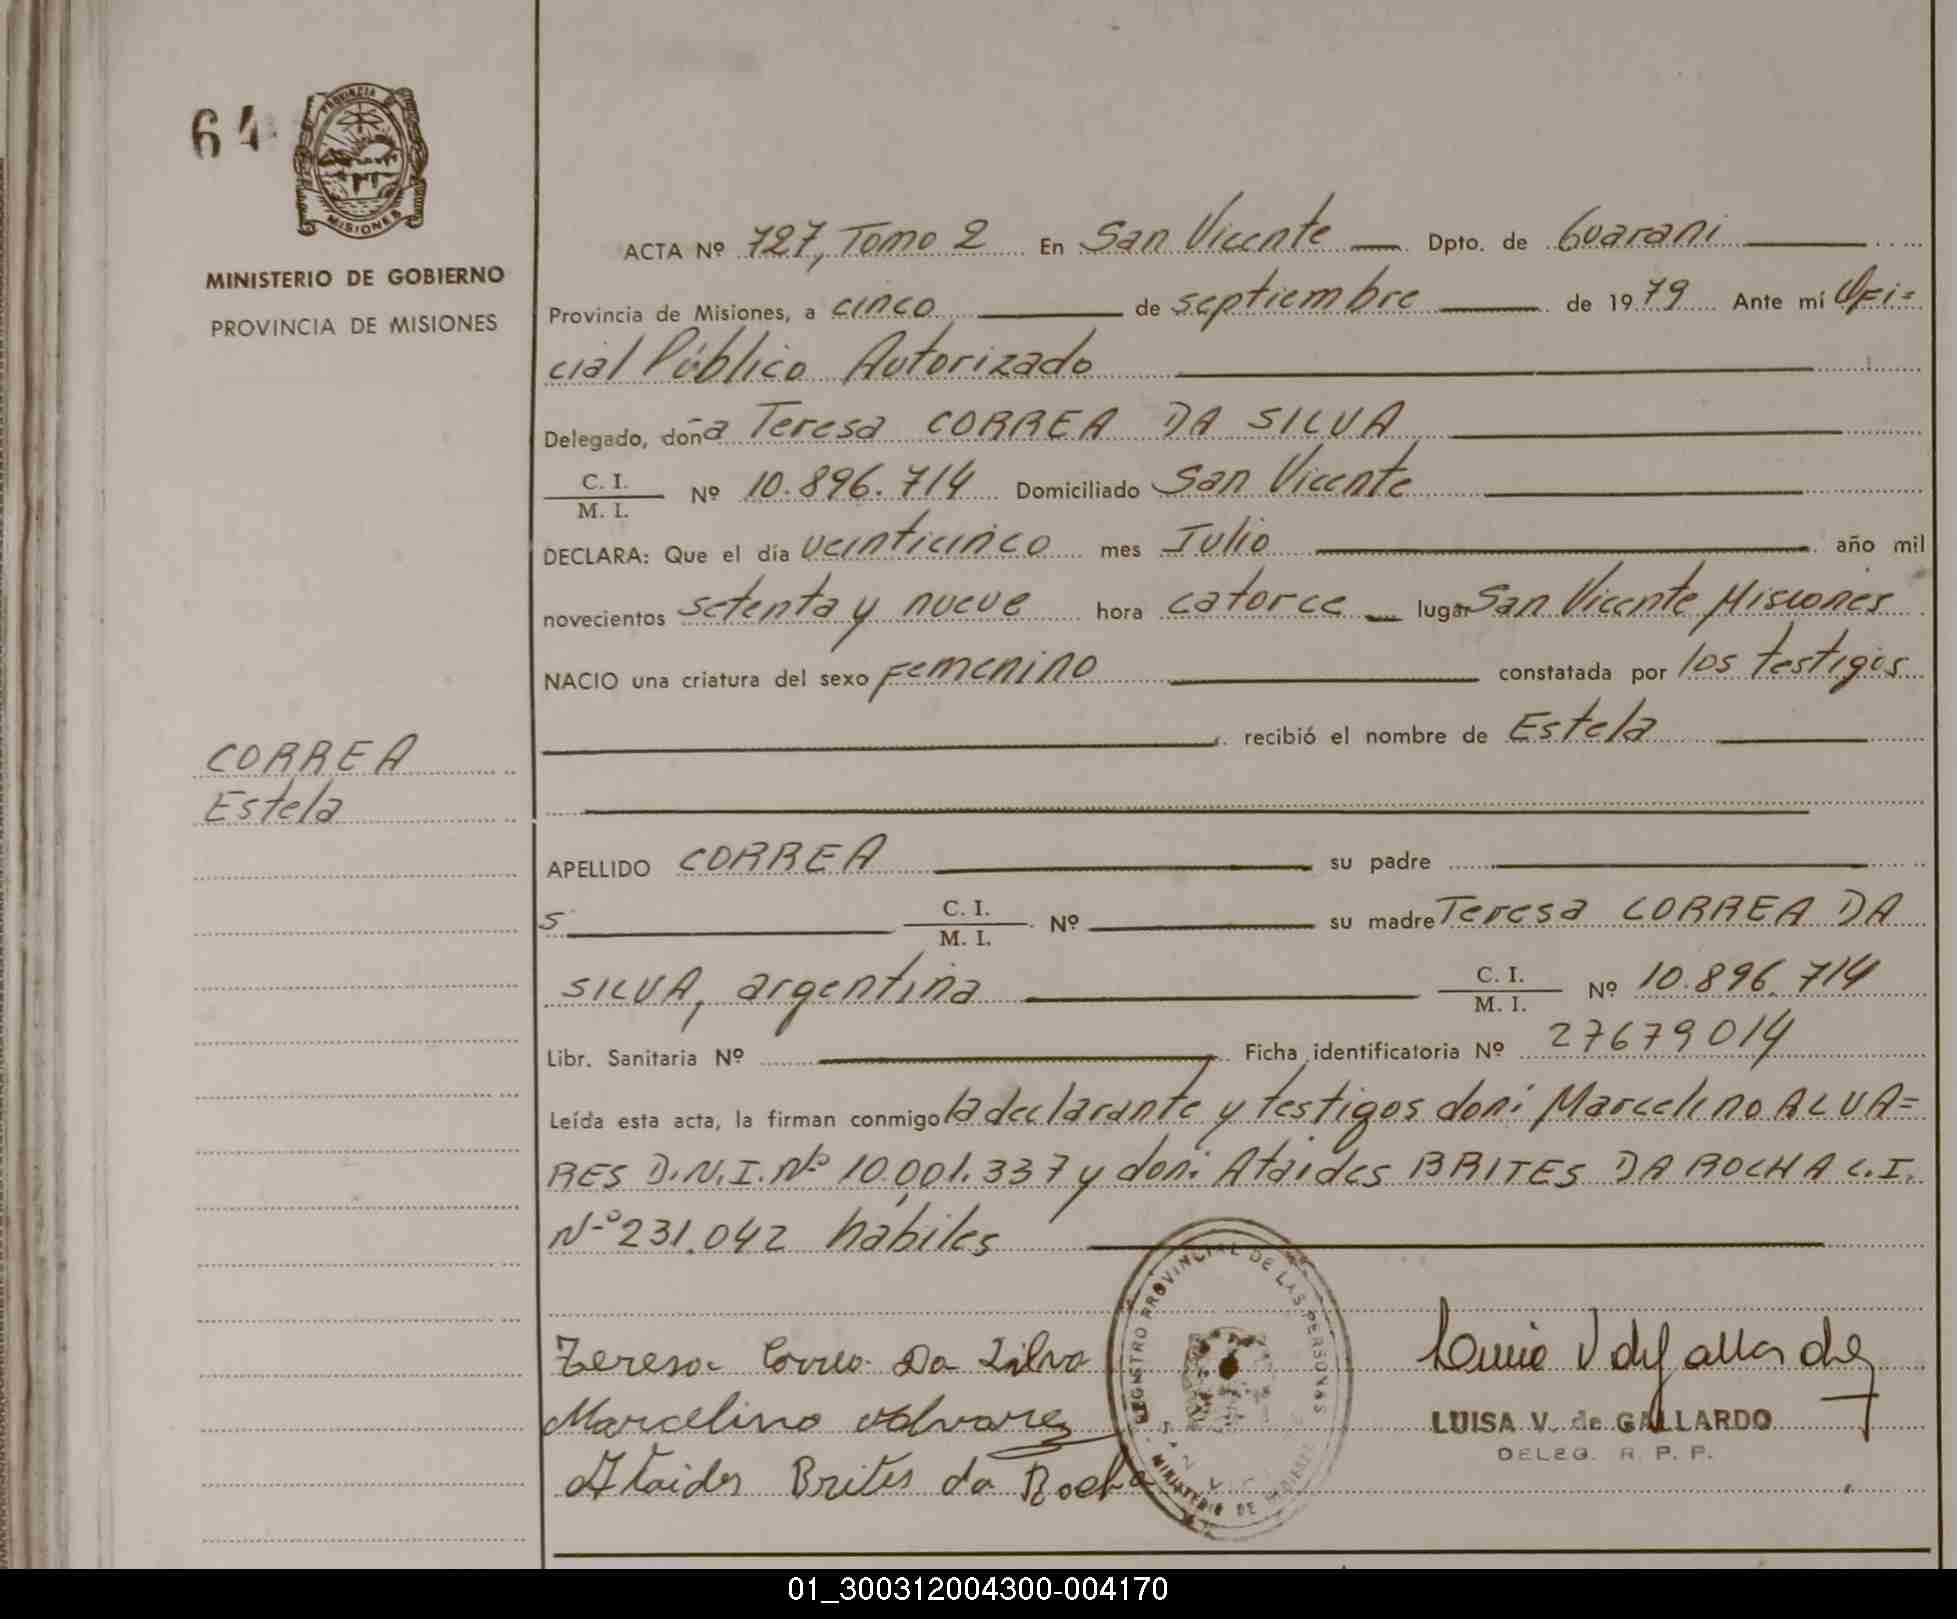 64
PROVINCIA DE
MISIONES
MINISTERIO DE GOBIERNO
PROVINCIA DE MISIONES
CORREA
Estela
ACTA Nº 727, Tomo 2 En San Vicente Dpto. de Guarani
Provincia de Misiones, a cinco de septiembre de 1979 Ante mí Ofi=
cial Público Autorizado
Delegado, doña Teresa CORREA DA SILVA
C. I.
M. I. Nº 10.896.714 Domiciliado San Vicente
DECLARA: Que el día veinticinco mes Julio año mil
novecientos setenta y nueve hora catorce lugar San Vicente Misiones
NACIO una criatura del sexo Femenino constatada por los testigos
recibió el nombre de Estela
APELLIDO CORREA su padre
C. I.
M. I. Nº su madre Teresa CORREA DA
SILVA, argentina C. I.
M. I. Nº 10.896.714
Libr. Sanitaria Nº Ficha identificatoria Nº 27679014
Leída esta acta, la firman conmigo la declarante y testigos don: Marcelino ALVA=
RES D.N.I. Nº 10.001.337 y don: Ataides BRITES DA ROCHA C.I.
Nº 231.042 hábiles
Teresa Correa Da Silva
Marcelino Alvarez
Ataides Brites da Rocha
REGISTRO PROVINCIAL DE LAS PERSONAS
MINISTERIO DE
LUISA V. de GALLARDO
DELEG. R. P. P.
01_300312004300-004170